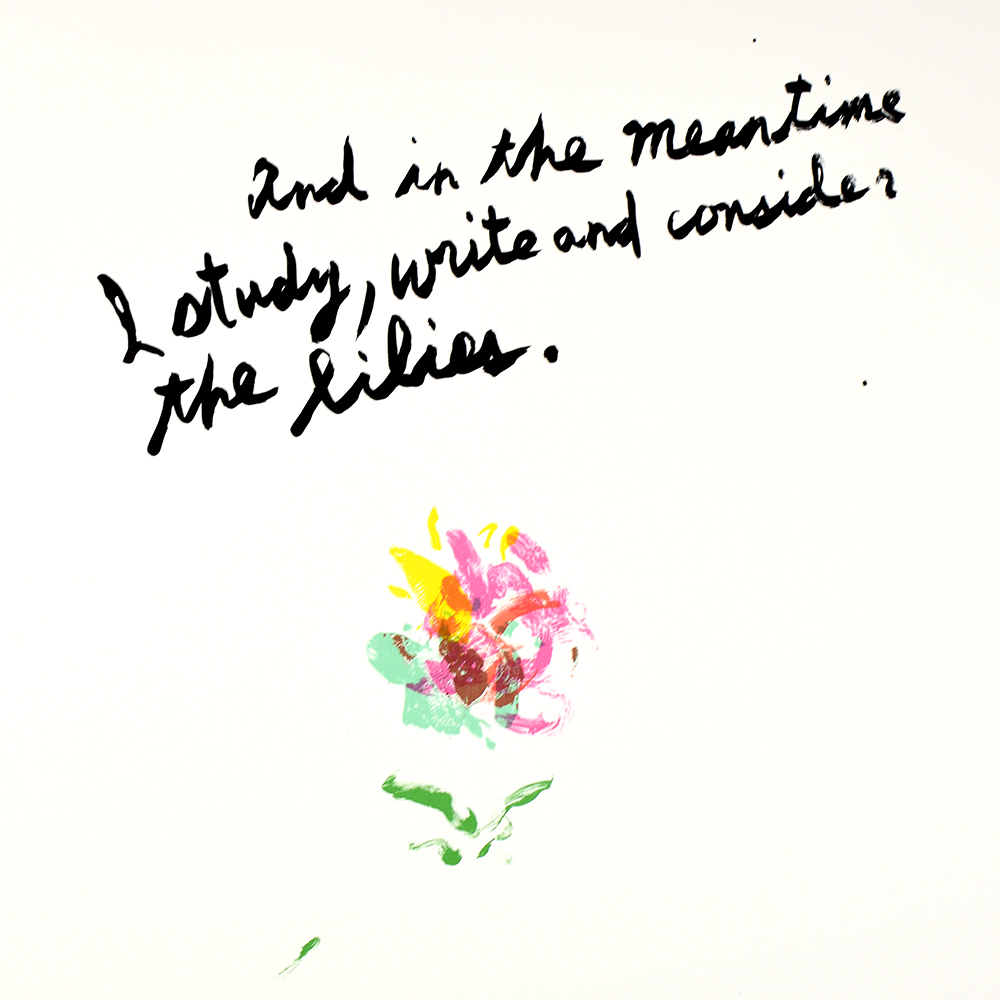 and in the meantime
I study, write and consider
the lilies.